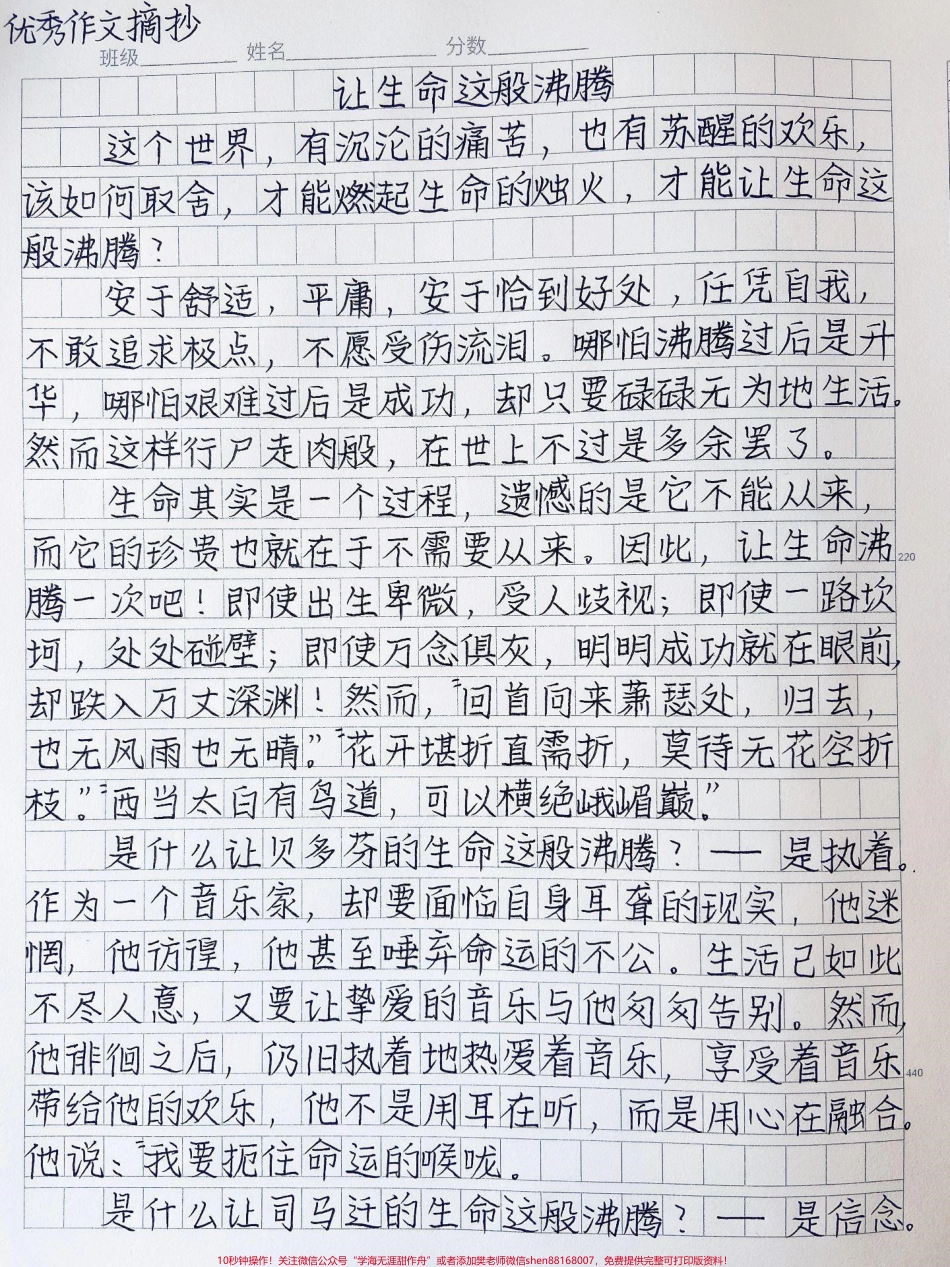 优秀作文摘抄
班级 姓名 分数
让生命这般沸腾
这个世界，有沉沦的痛苦，也有苏醒的欢乐，
该如何取舍，才能燃起生命的烛火，才能让生命这
般沸腾？
安于舒适，平庸，安于恰到好处，任凭自我，
不敢追求极点，不愿受伤流泪。哪怕沸腾过后是升
华，哪怕艰难过后是成功，却只要碌碌无为地生活。
然而这样行尸走肉般，在世上不过是多余罢了。
生命其实是一个过程，遗憾的是它不能从来，
而它的珍贵也就在于不需要从来。因此，让生命沸
220
腾一次吧！即使出生卑微，受人歧视；即使一路坎
坷，处处碰壁；即使万念俱灰，明明成功就在眼前，
却跌入万丈深渊！然而，“回首向来萧瑟处，归去，
也无风雨也无晴。”“花开堪折直需折，莫待无花空折
枝”。“西当太白有鸟道，可以横绝峨嵋巅。”
是什么让贝多芬的生命这般沸腾？——是执着。
作为一个音乐家，却要面临自身耳聋的现实，他迷
惘，他彷徨，他甚至唾弃命运的不公。生活已如此
不尽人意，又要让挚爱的音乐与他匆匆告别。然而，
他徘徊之后，仍旧执着地热爱着音乐，享受着音乐
440
带给他的欢乐，他不是用耳在听，而是用心在融合。
他说：“我要扼住命运的喉咙。
是什么让司马迁的生命这般沸腾？——是信念。
10秒钟操作！关注微信公众号“学海无涯甜作舟”或者添加樊老师微信shen88168007，免费提供完整可打印版资料！